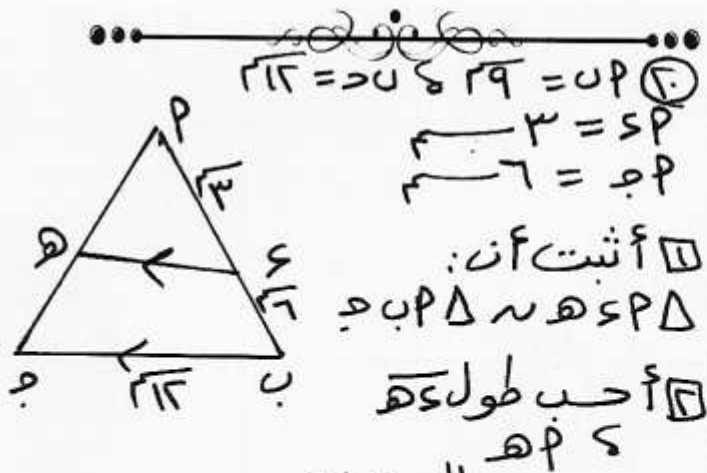 ٢٠ أب = ٩سم ، بحـ = ١٢سم
أء = ٣سم
أجـ = ٦سم
١ أثبت أن:
Δ أءهـ ~ Δ أب جـ
٢ أحسب طول ءهـ
، أهـ
أ
٣سم
هـ
ء
٦سم
جـ
١٢سم
ب